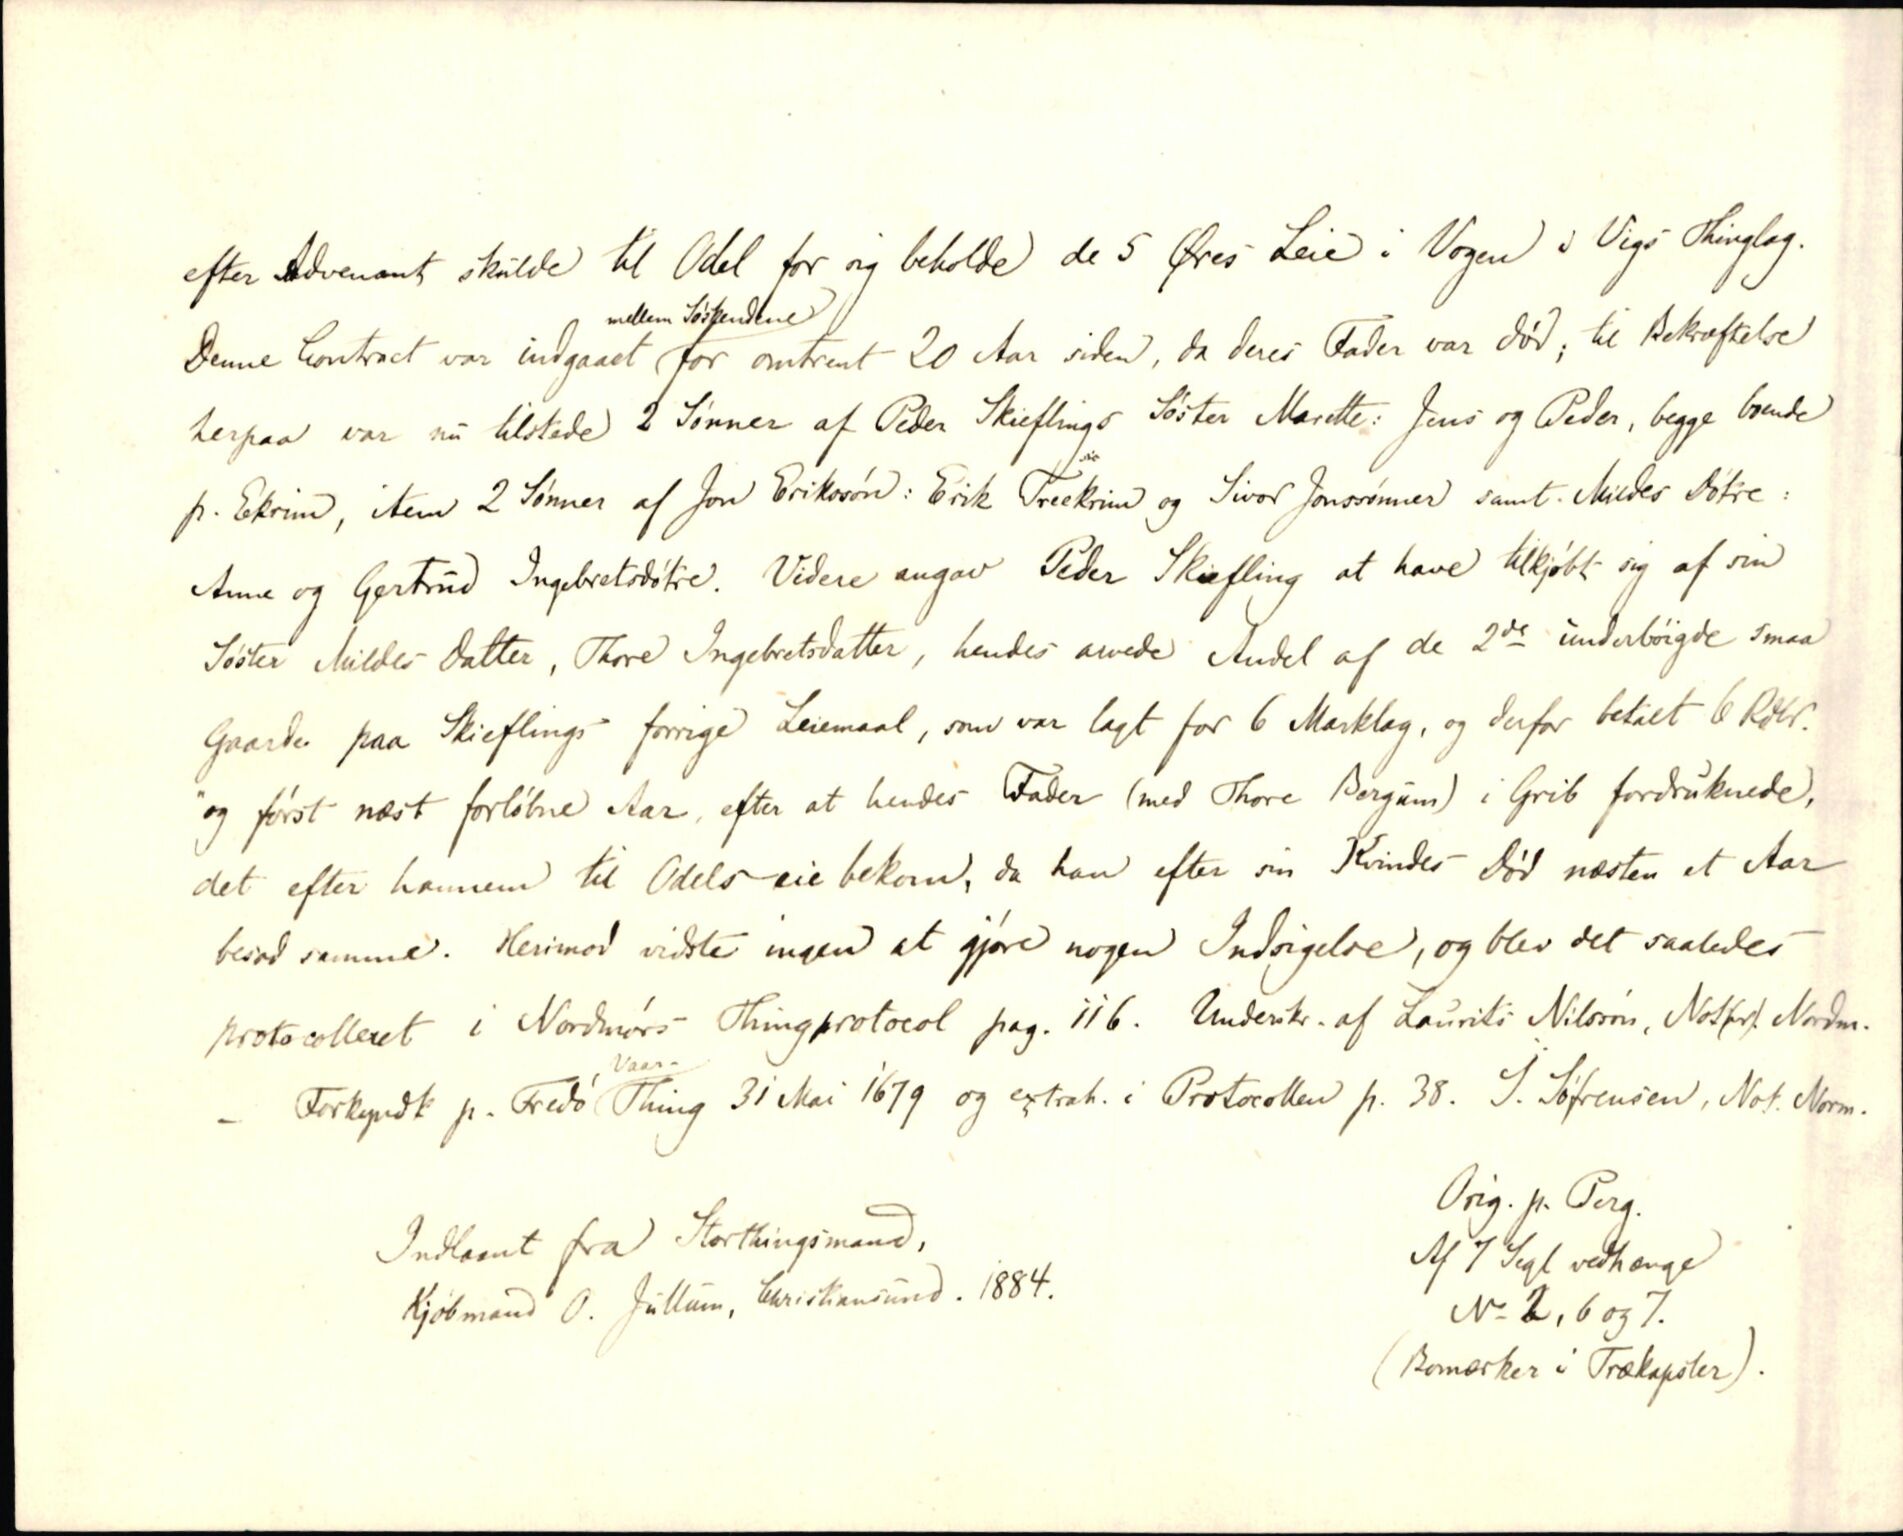 efter Advenant skulde til Odel for sig beholde de 5 Øres Leie i Vogen i Vigs Thinglag.
mellem Söskendene
Denne Contract var indgaaet for omtrent 20 Aar siden, da deres Fader var död; til Bekræftelse
herpaa var nu tilstede 2 Sönner af Peder Skieflings Söster Marette: Jens og Peder, begge boende
sic
p. Ekrim, item 2 Sönner af Jon Eriksön: Erik Treekrim og Sivor Jonssönner samt Mildes Dötre:
Anne og Gertrud Ingebretsdötre. Videre angav Peder Skiefling at have tilkjöbt sig af sin
Söster Mildes Datter, Thore Ingebretsdatter, hendes arvede Andel af de 2de underböigde smaa
Gaarde paa Skieflings forrige Leiemaal, som var lagt for 6 Marklag, og derfor betalt 6 Rdlr.
"og först næst forløbne Aar, efter at hendes Fader (med Thore Bergum) i Grib fordruknede,
det efter hannem til Odels eie bekom, da han efter sin Kvindes Död næsten et Aar
besad samme. Herimod vidste ingen at gjöre nogen Indsigelse, og blev det saaledes
protocolleret i Nordmörs Thingprotocol pag. 116. Underskr. af Laurits Nilssön, Not(p). Nordm.
Vaar-
– Forkyndt p. Fredö Thing 31 Mai 1679 og extrah. i Protocollen p. 38. S. Söfrensen, Not. Norm.
Orig. p. Perg.
Af 7 Segl vedhænge
No 2, 6 og 7.
(Bomærker i Trækapsler).
Indlaant fra Storthingsmand,
Kjöbmand O. Jullum, Christiansund. 1884.